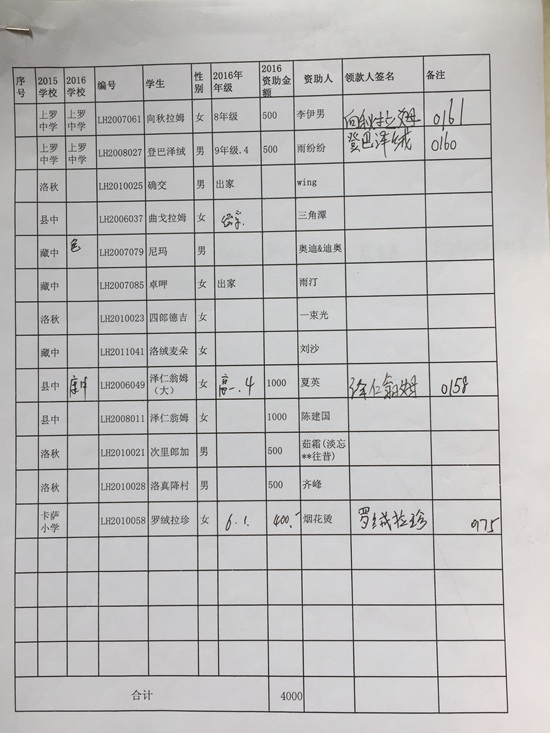 序号 2015学校 2016学校 编号 学生 性别 2016年年级 2016资助金额 资助人 领款人签名 备注
上罗中学 上罗中学 LH2007061 向秋拉姆 女 8年级 500 李伊男 向秋拉姆 0161
上罗中学 上罗中学 LH2008027 登巴泽绒 男 9年级.4 500 雨纷纷 登巴泽绒 0160
洛秋 LH2010025 确交 男 出家 wing
县中 LH2006037 曲戈拉姆 女 三角潭
藏中 色 LH2007079 尼玛 男 奥迪&迪奥
藏中 LH2007085 卓呷 女 出家 雨汀
洛秋 LH2010023 四郎德吉 女 一束光
藏中 LH2011041 洛绒麦朵 女 刘沙
县中 康中 LH2006049 泽仁翁姆（大） 女 高一.4 1000 夏英 泽仁翁姆 0158
县中 LH2008011 泽仁翁姆 女 1000 陈建国
洛秋 LH2010021 次里郎加 男 500 茹霜(淡忘**往昔)
洛秋 LH2010028 洛真降村 男 500 齐峰
卡萨小学 LH2010058 罗绒拉珍 女 6.1. 400.- 烟花烫 罗绒拉珍 075
合计 4000